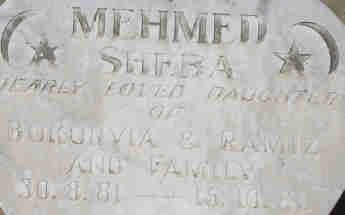 MEHMED
SHEBA
DEARLY LOVED DAUGHTER
OF
& RAMIZ
AND FAMILY
30.8.81 — 15.10.81